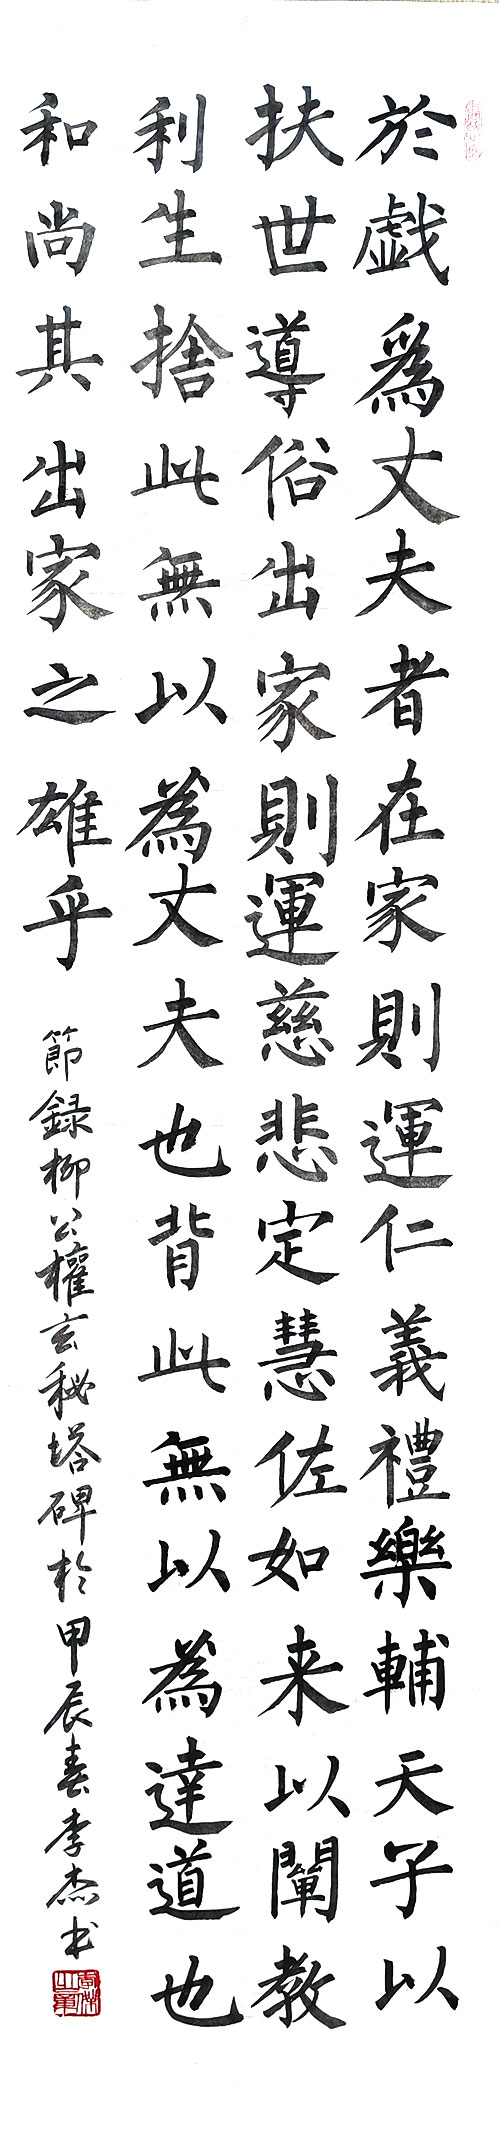 於戯爲丈夫者在家則運仁義禮樂輔天子以
扶世導俗出家則運慈悲定慧佐如来以闡教
利生捨此無以為丈夫也背此無以為達道也
和尚其出家之雄乎
節録柳公權玄秘塔碑於甲辰春李杰书